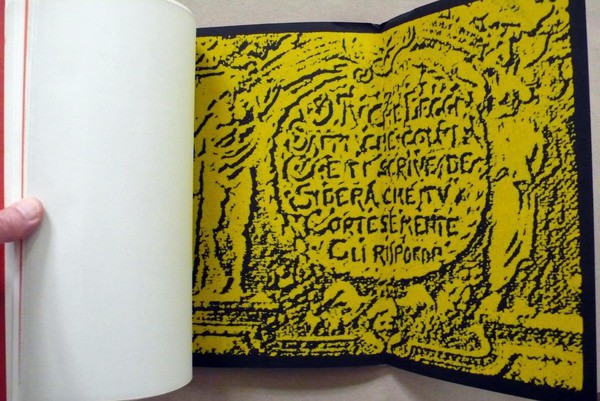 O TV CHE LEGGI
CHE
TI SCRIVE DE
SIDERA CHE TV
CORTESEMENTE
GLI RISPONDA